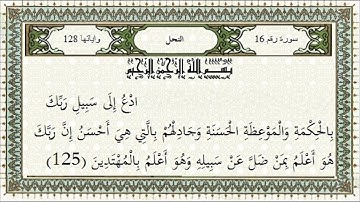 سورة رقم 16 النحل وآياتها 128
بسم الله الرحمن الرحيم
ادْعُ إِلَى سَبِيلِ رَبِّكَ
بِالْحِكْمَةِ وَالْمَوْعِظَةِ الْحَسَنَةِ وَجَادِلْهُمْ بِالَّتِي هِيَ أَحْسَنُ إِنَّ رَبَّكَ
هُوَ أَعْلَمُ بِمَنْ ضَلَّ عَنْ سَبِيلِهِ وَهُوَ أَعْلَمُ بِالْمُهْتَدِينَ (125)